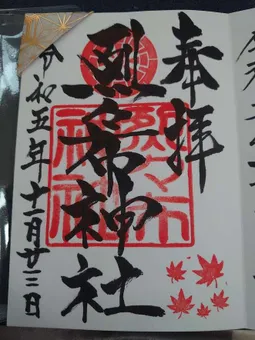 奉拝
烈々布神社
令和五年十一月廿三日